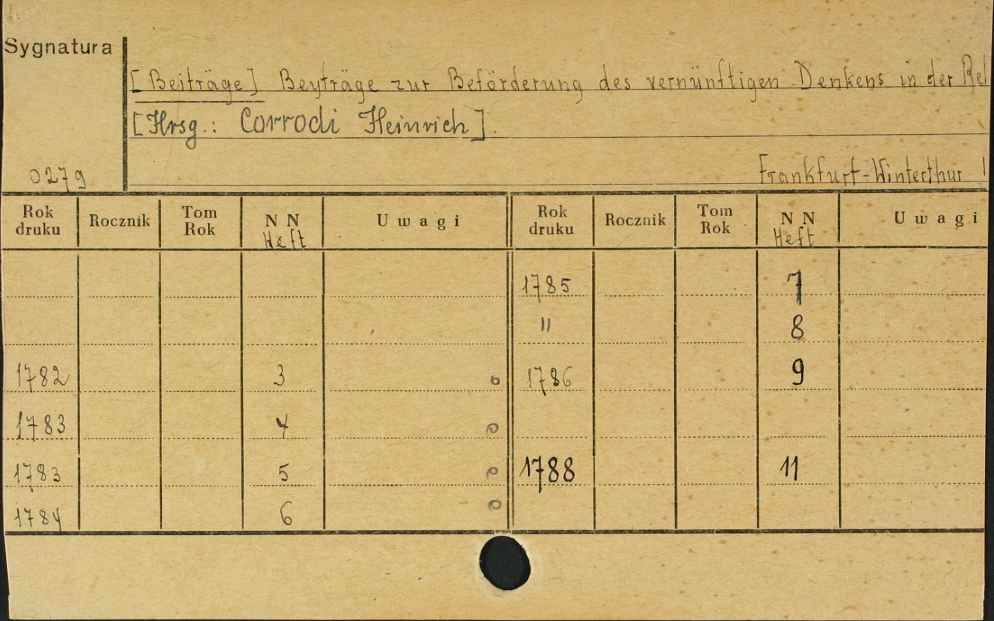 Sygnatura
[Beiträge] Beyträge zur Beförderung des vernünftigen Denkens in der Rel
[Hrsg.: Corrodi Heinrich].
0279
Frankfurt-Winterthur 1
Rok druku Rocznik Tom Rok N N Heft Uwagi Rok druku Rocznik Tom Rok N N Heft Uwagi
1785 7
" 8
1782 3 1786 9
1783 4
1783 5 1788 11
1784 6